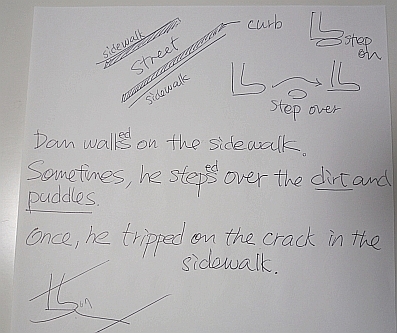 sidewalk
street
curb
sidewalk
step
on
step over
Dan walked on the sidewalk.
Sometimes, he steped over the dirt and
puddles.
Once, he tripped on the crack in the
sidewalk.
on